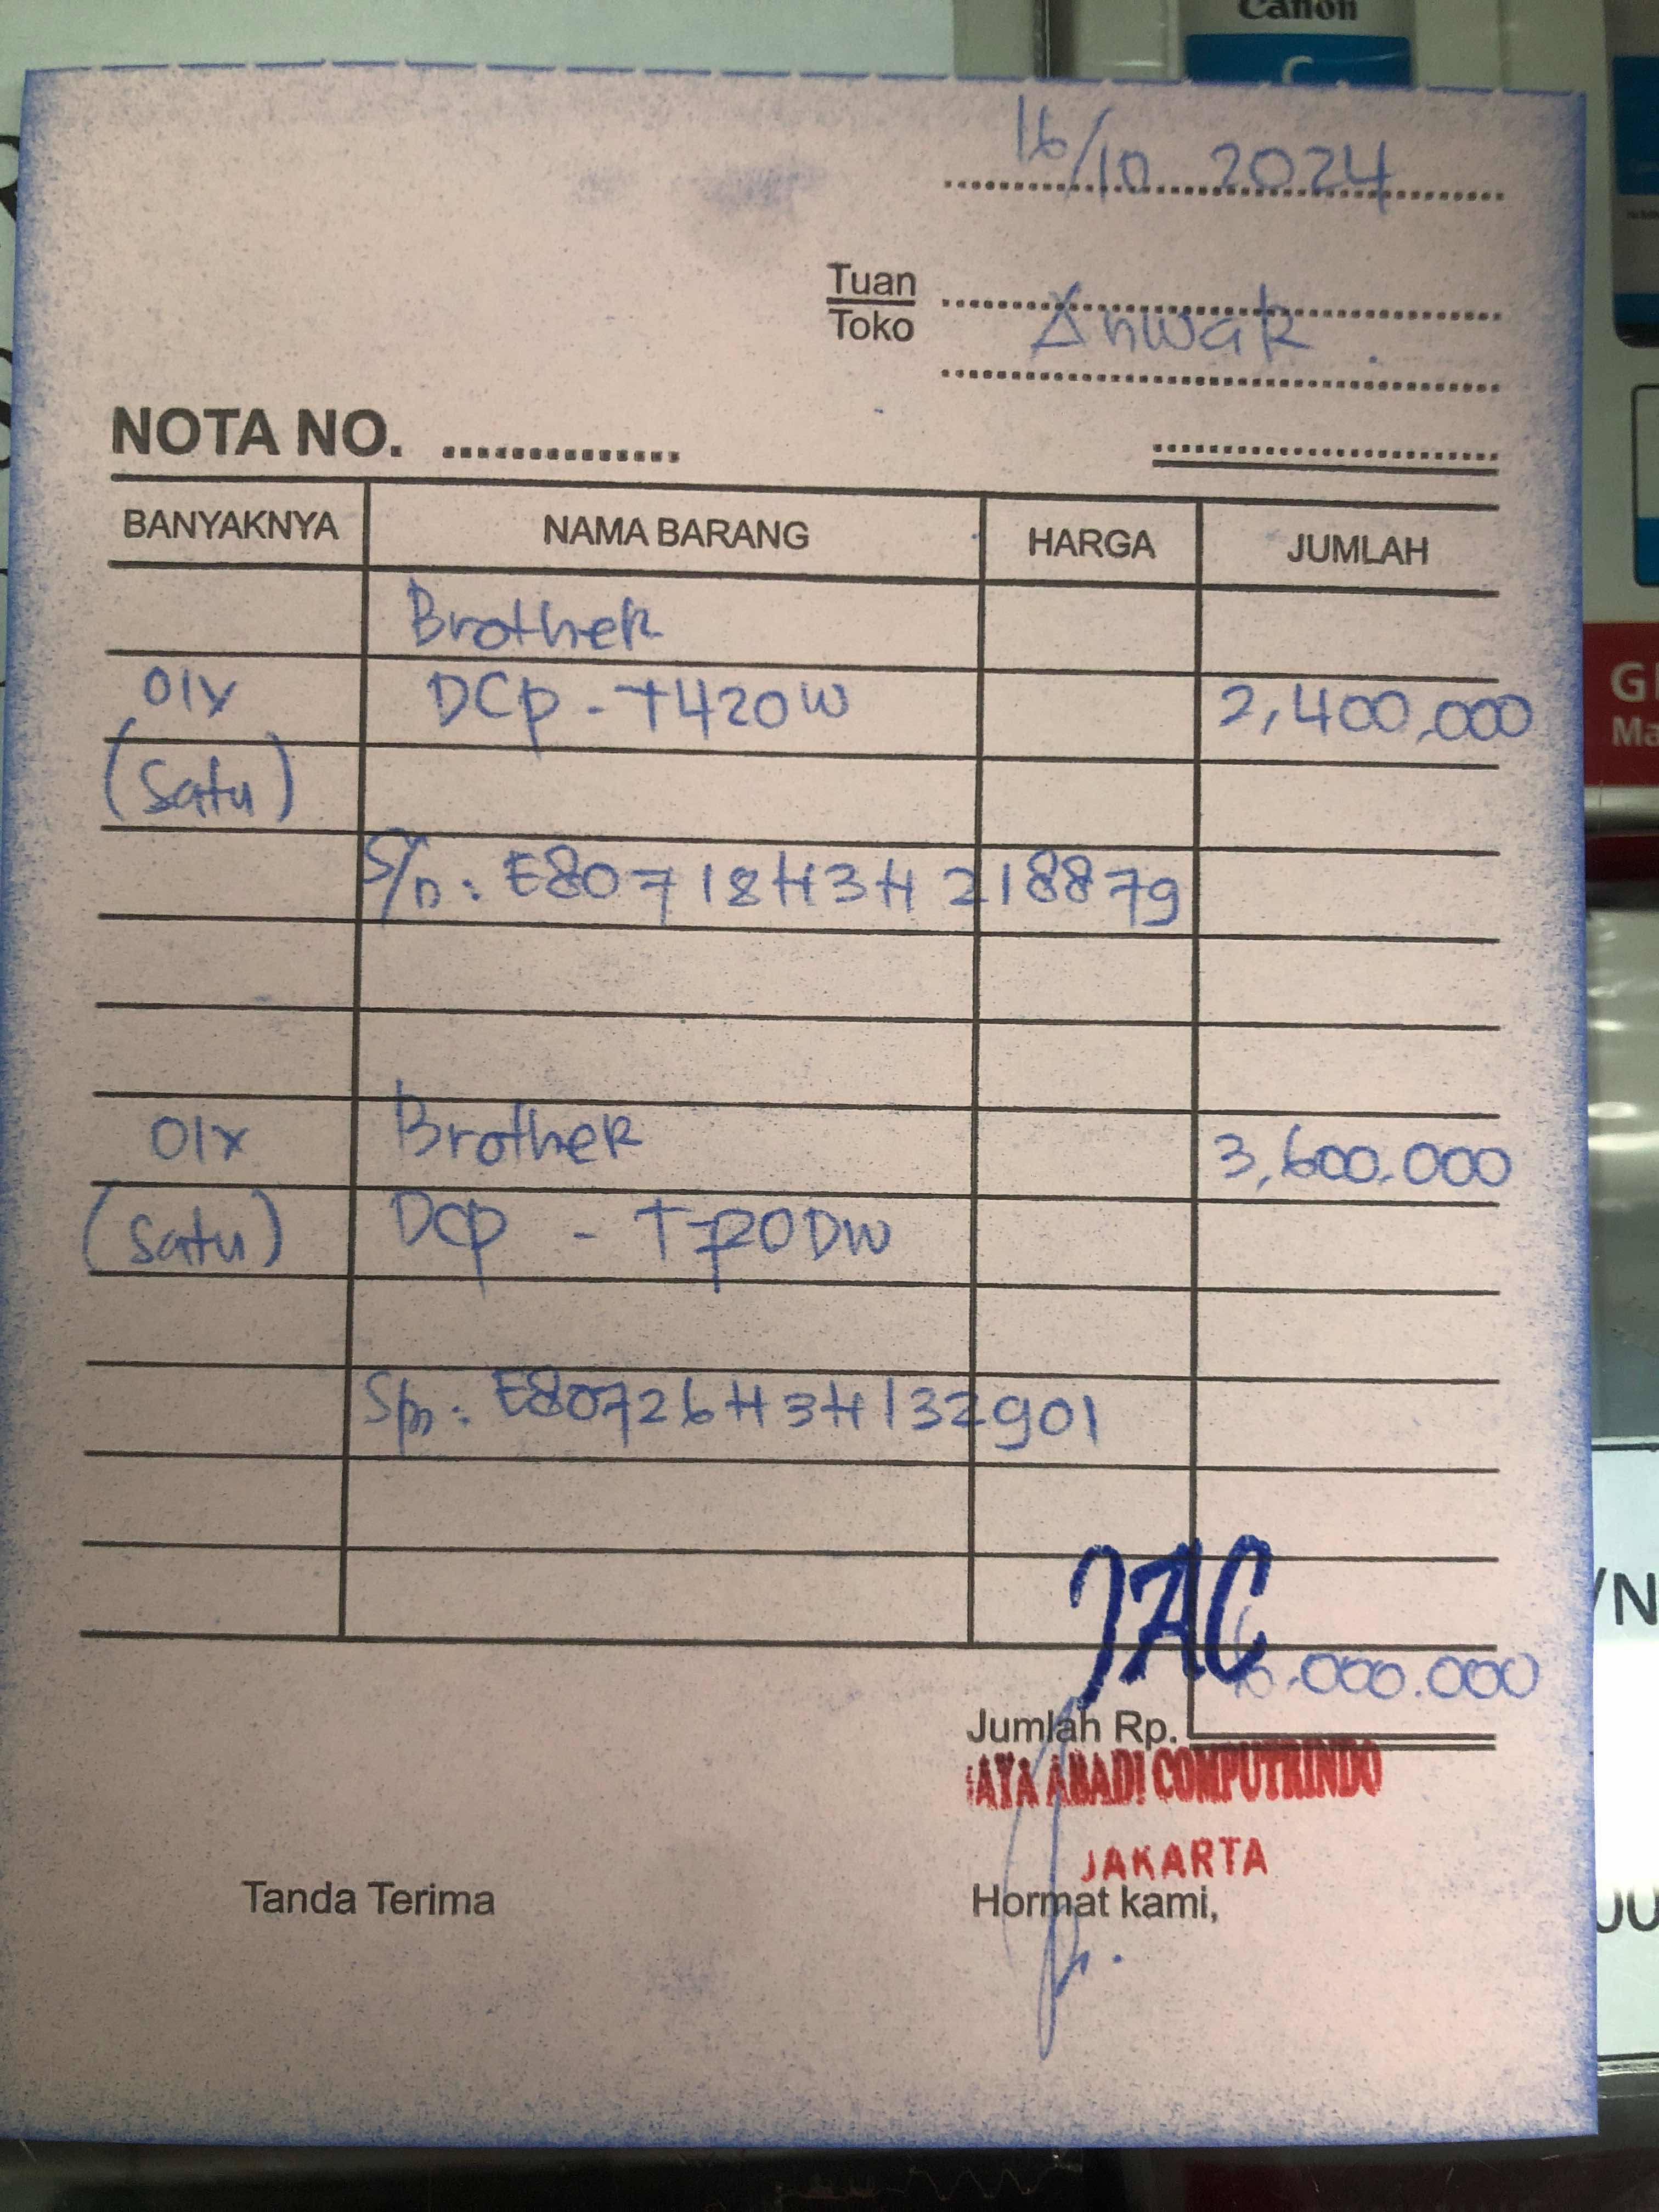 Canon
16/10 2024
Tuan
Toko
Anwar.
NOTA NO.
BANYAKNYA NAMA BARANG HARGA JUMLAH
Brother
01x DCP - T420W 2,400,000
(Satu)
S/n: E80718H3H218879
01x Brother 3,600.000
(Satu) DCP - T720DW
S/n: E80726H3H132901
JAC
6.000.000
Jumlah Rp.
JAYA ABADI COMPUTRINDO
JAKARTA
Tanda Terima Hormat kami,